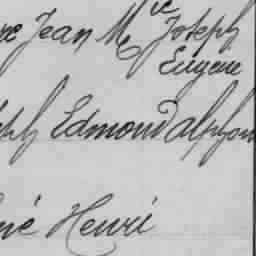 Jean Mie Joseph
Eugene
Edmond Alphon
Henri